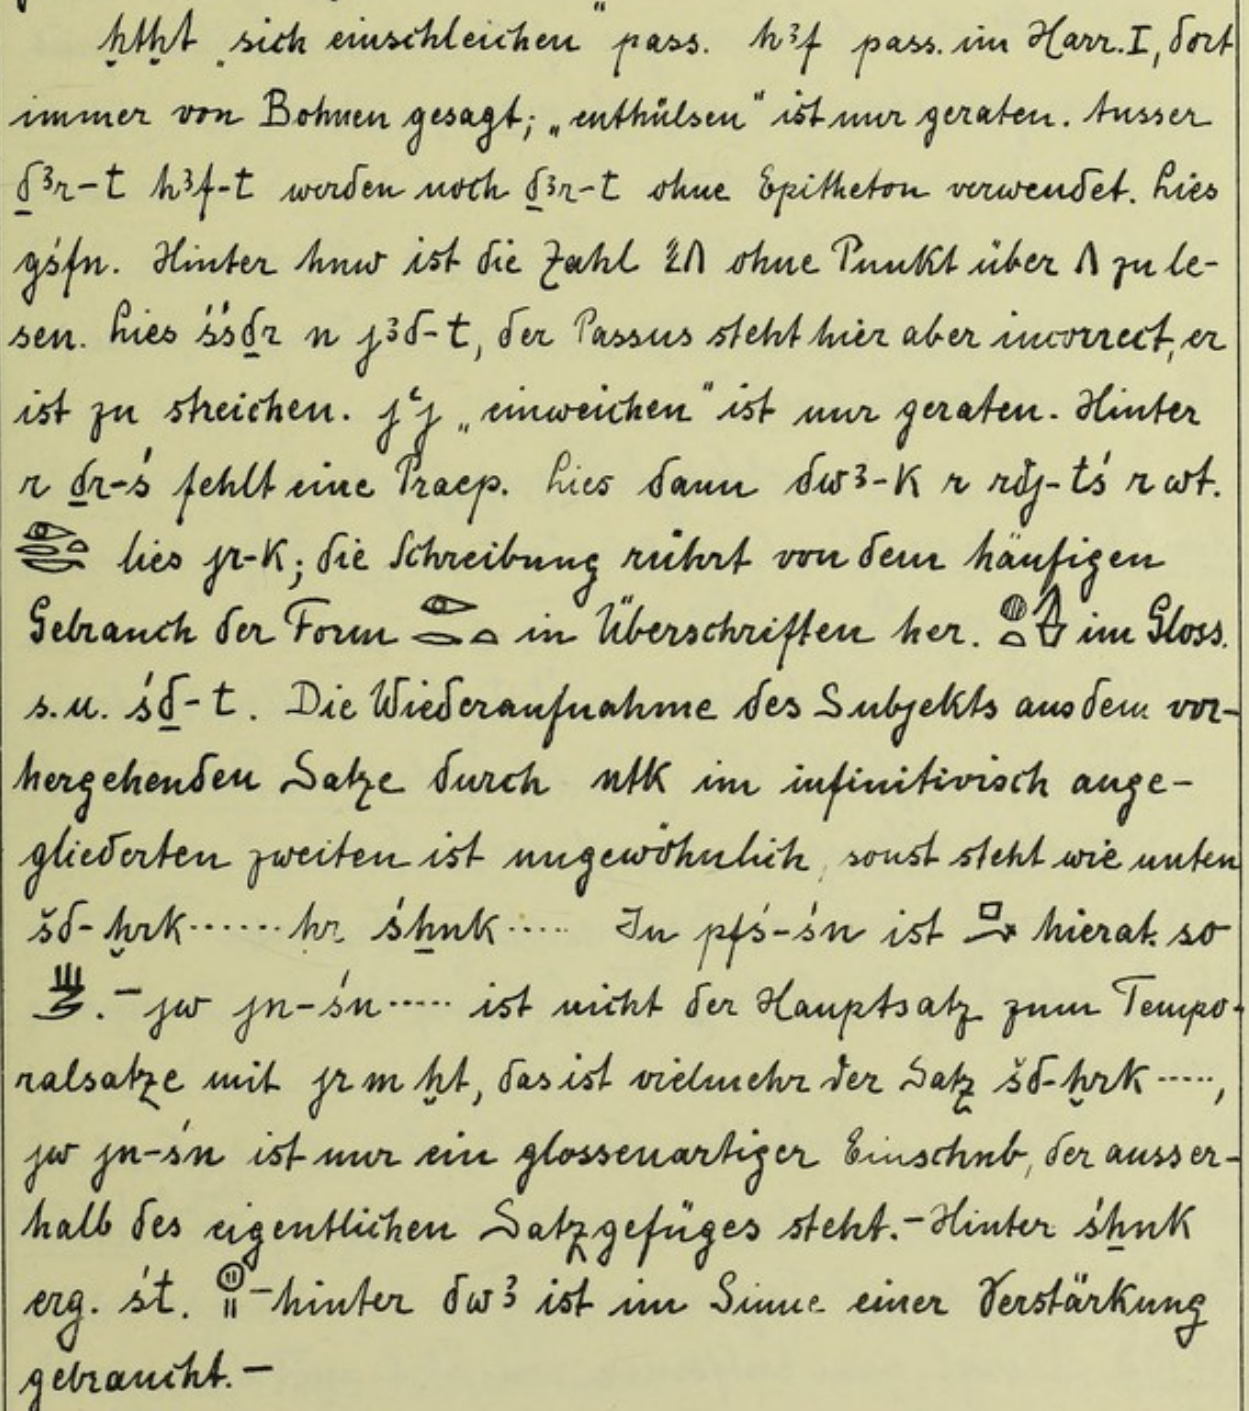 ḫtḫt „sich einschleichen“ pass. h³f pass. im Harr. I, dort
immer von Bohnen gesagt; „enthülsen“ ist nur geraten. Ausser
ḏ³r-t h³f-t werden noch ḏ³r-t ohne Epitheton verwendet. Lies
gśfn. Hinter hnw ist die Zahl ohne Punkt über zu le-
sen. Lies śśḏr n j³d-t, der Passus steht hier aber incorrect, er
ist zu streichen. jʿj „einweichen“ ist nur geraten. Hinter
r ḏr-ś fehlt eine Praep. Lies dann dw³-k r rdj-tś r wt.
𓁹𓂋𓏏𓎡 lies jr-k; die Schreibung rührt von dem häufigen
Gebrauch der Form 𓁹𓂋𓏏 in Überschriften her. 𓐍𓏏𓊮 im Gloss.
s.u. śḏ-t. Die Wiederaufnahme des Subjekts aus dem vor-
hergehenden Satze durch ntk im infinitivisch ange-
gliederten zweiten ist ungewöhnlich, sonst steht wie unten
šd-ḫrk······hr śẖnk····· In pfś-śn ist hierat. so
. – jw jn-śn ····· ist nicht der Hauptsatz zum Tempo-
ralsatze mit jr m ḫt, das ist vielmehr der Satz šd-ḫrk ·····,
jw jn-śn ist nur ein glossenartiger Einschub, der ausser-
halb des eigentlichen Satzgefüges steht. – Hinter śẖnk
erg. śt. – hinter dw³ ist im Sinne einer Verstärkung
gebraucht. –